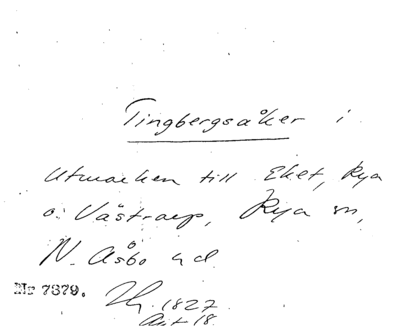 Tingbergsåker i
Utmarken till Eket, Rya
o. Västraep, Rya sn,
N. Åsbo hd
Nr 7379. 1827
Akt 18